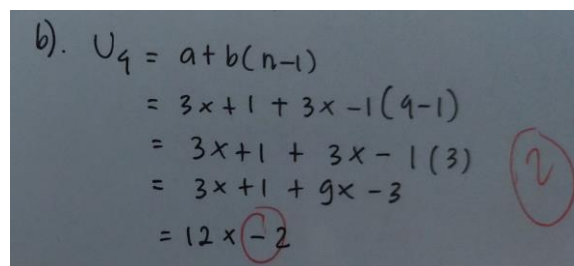 b). U4 = a + b(n-1)
= 3x + 1 + 3x - 1(4-1)
= 3x+1 + 3x - 1(3)
= 3x+1 + 9x - 3
= 12x - 2
2